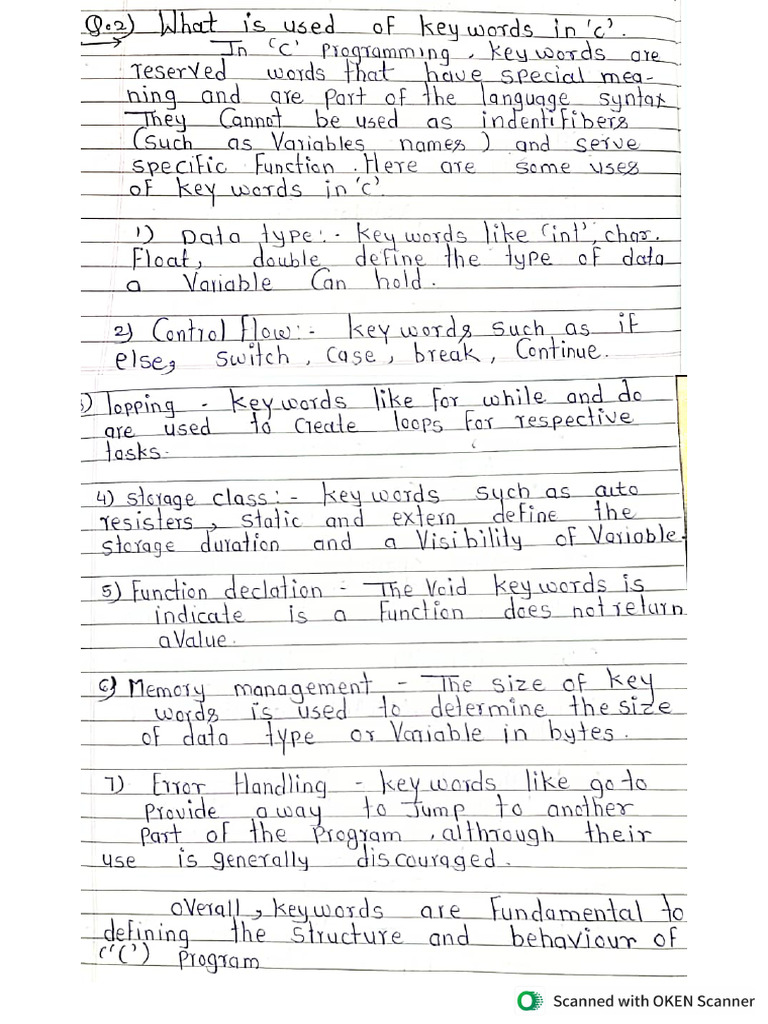 Q.2) What is used of key words in 'c'.
In 'C' Programming, key words are
reserved words that have special mea-
ning and are part of the language syntax
They Cannot be used as indentifibers
(such as Variables names) and serve
specific Function. Here are some uses
of key words in 'c'
1) Data type:- key words like 'int', char.
Float, double define the type of data
a Variable Can hold.
2) Control flow:- key words such as if
else, switch, case, break, Continue.
3) lopping - key words like for while and do
are used to Create loops for respective
tasks.
4) storage class:- key words such as auto
resisters, static and extern define the
storage duration and a Visibility of Variable.
5) Function declation - The Void key words is
indicate is a Function does not return
a Value.
6) Memory management - The size of key
words is used to determine the size
of data type or Variable in bytes.
7) Error Handling - key words like go to
Provide a way to Jump to another
Part of the Program, althrough their
use is generally discouraged.
Overall, key words are Fundamental to
defining the structure and behaviour of
"(') Program
Scanned with OKEN Scanner